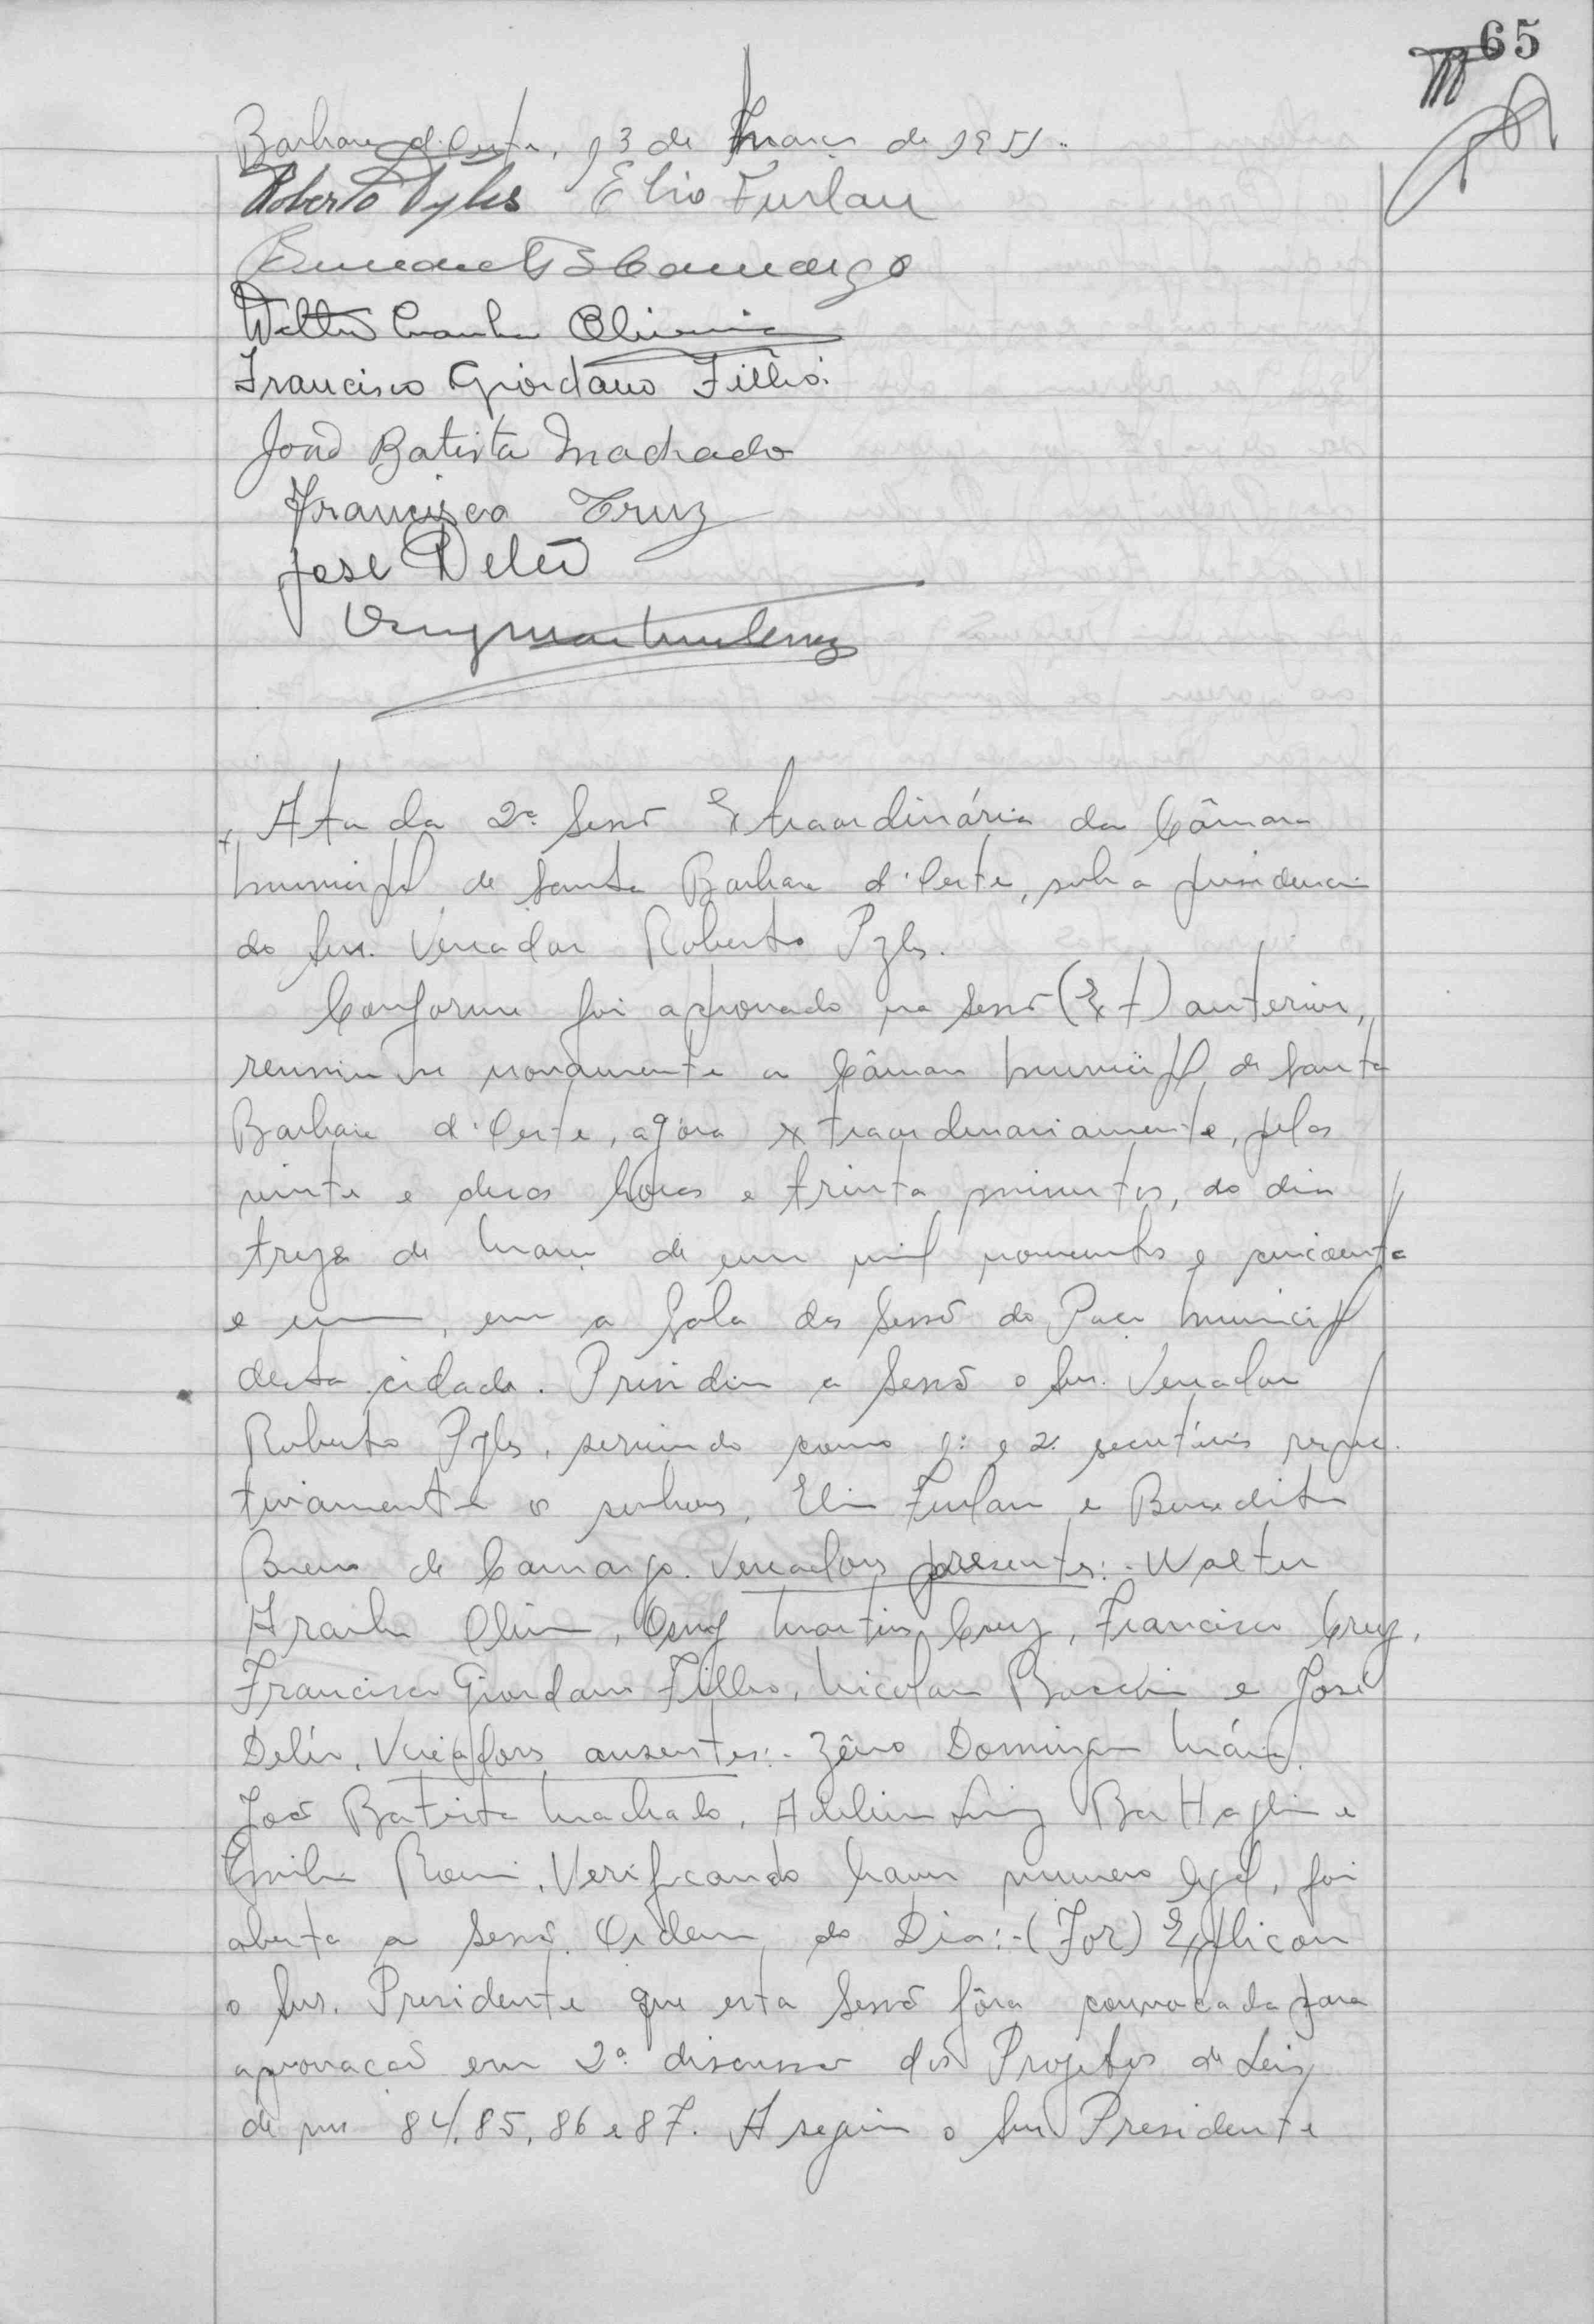 65
Barbara d'Oeste, 13 de Março de 1951.
Roberto Pyles Elio Furlan
Benedito B Camargo
Walter Aranha Oliveira
Francisco Giordano Filho.
João Batista Machado
Francisco Cruz
José Deleo
Osny Martins Cruz
Ata da 2ª Sessão Extraordinária da Câmara
Municipal de Santa Barbara d'Oeste, sob a presidencia
do Snr. Vereador Roberto Pyles.
Conforme foi aprovado na Sessão (Ext) anterior,
reuniu se novamente a Câmara Municipal de Santa
Barbara d'Oeste, agora extraordenariamente, pelas
vinte e duas horas e trinta minutos, do dia
treze de Março de um mil novecentos e cincoenta
e um, em a Sala das Sessão do Paço Municipal
desta cidade. Presidiu a Sessão o Snr. Vereador
Roberto Pyles, servindo como 1º e 2º secretários respec
tivamente os senhores, Elio Furlan e Benedito
Bueno de Camargo. Vereadores presentes:- Walter
Aranha Oliveira, Osny Martins Cruz, Francisco Cruz,
Francisco Giordano Filho, Nicolau e José
Deléo. Vereadores ausentes:- Zêno Domingos Máia,
João Batista Machado, Adelino Luiz Battaglia e
Emilio Romi. Verificando haver numero legal, foi
aberta a Sessão. Ordem do Dia:- (For) Explicou
o Snr. Presidente que esta Sessão fôra convocada para
aprovação em 2ª discussão dos Projetos de Leis
de nos 84, 85, 86 e 87. A seguir o Snr Presidente